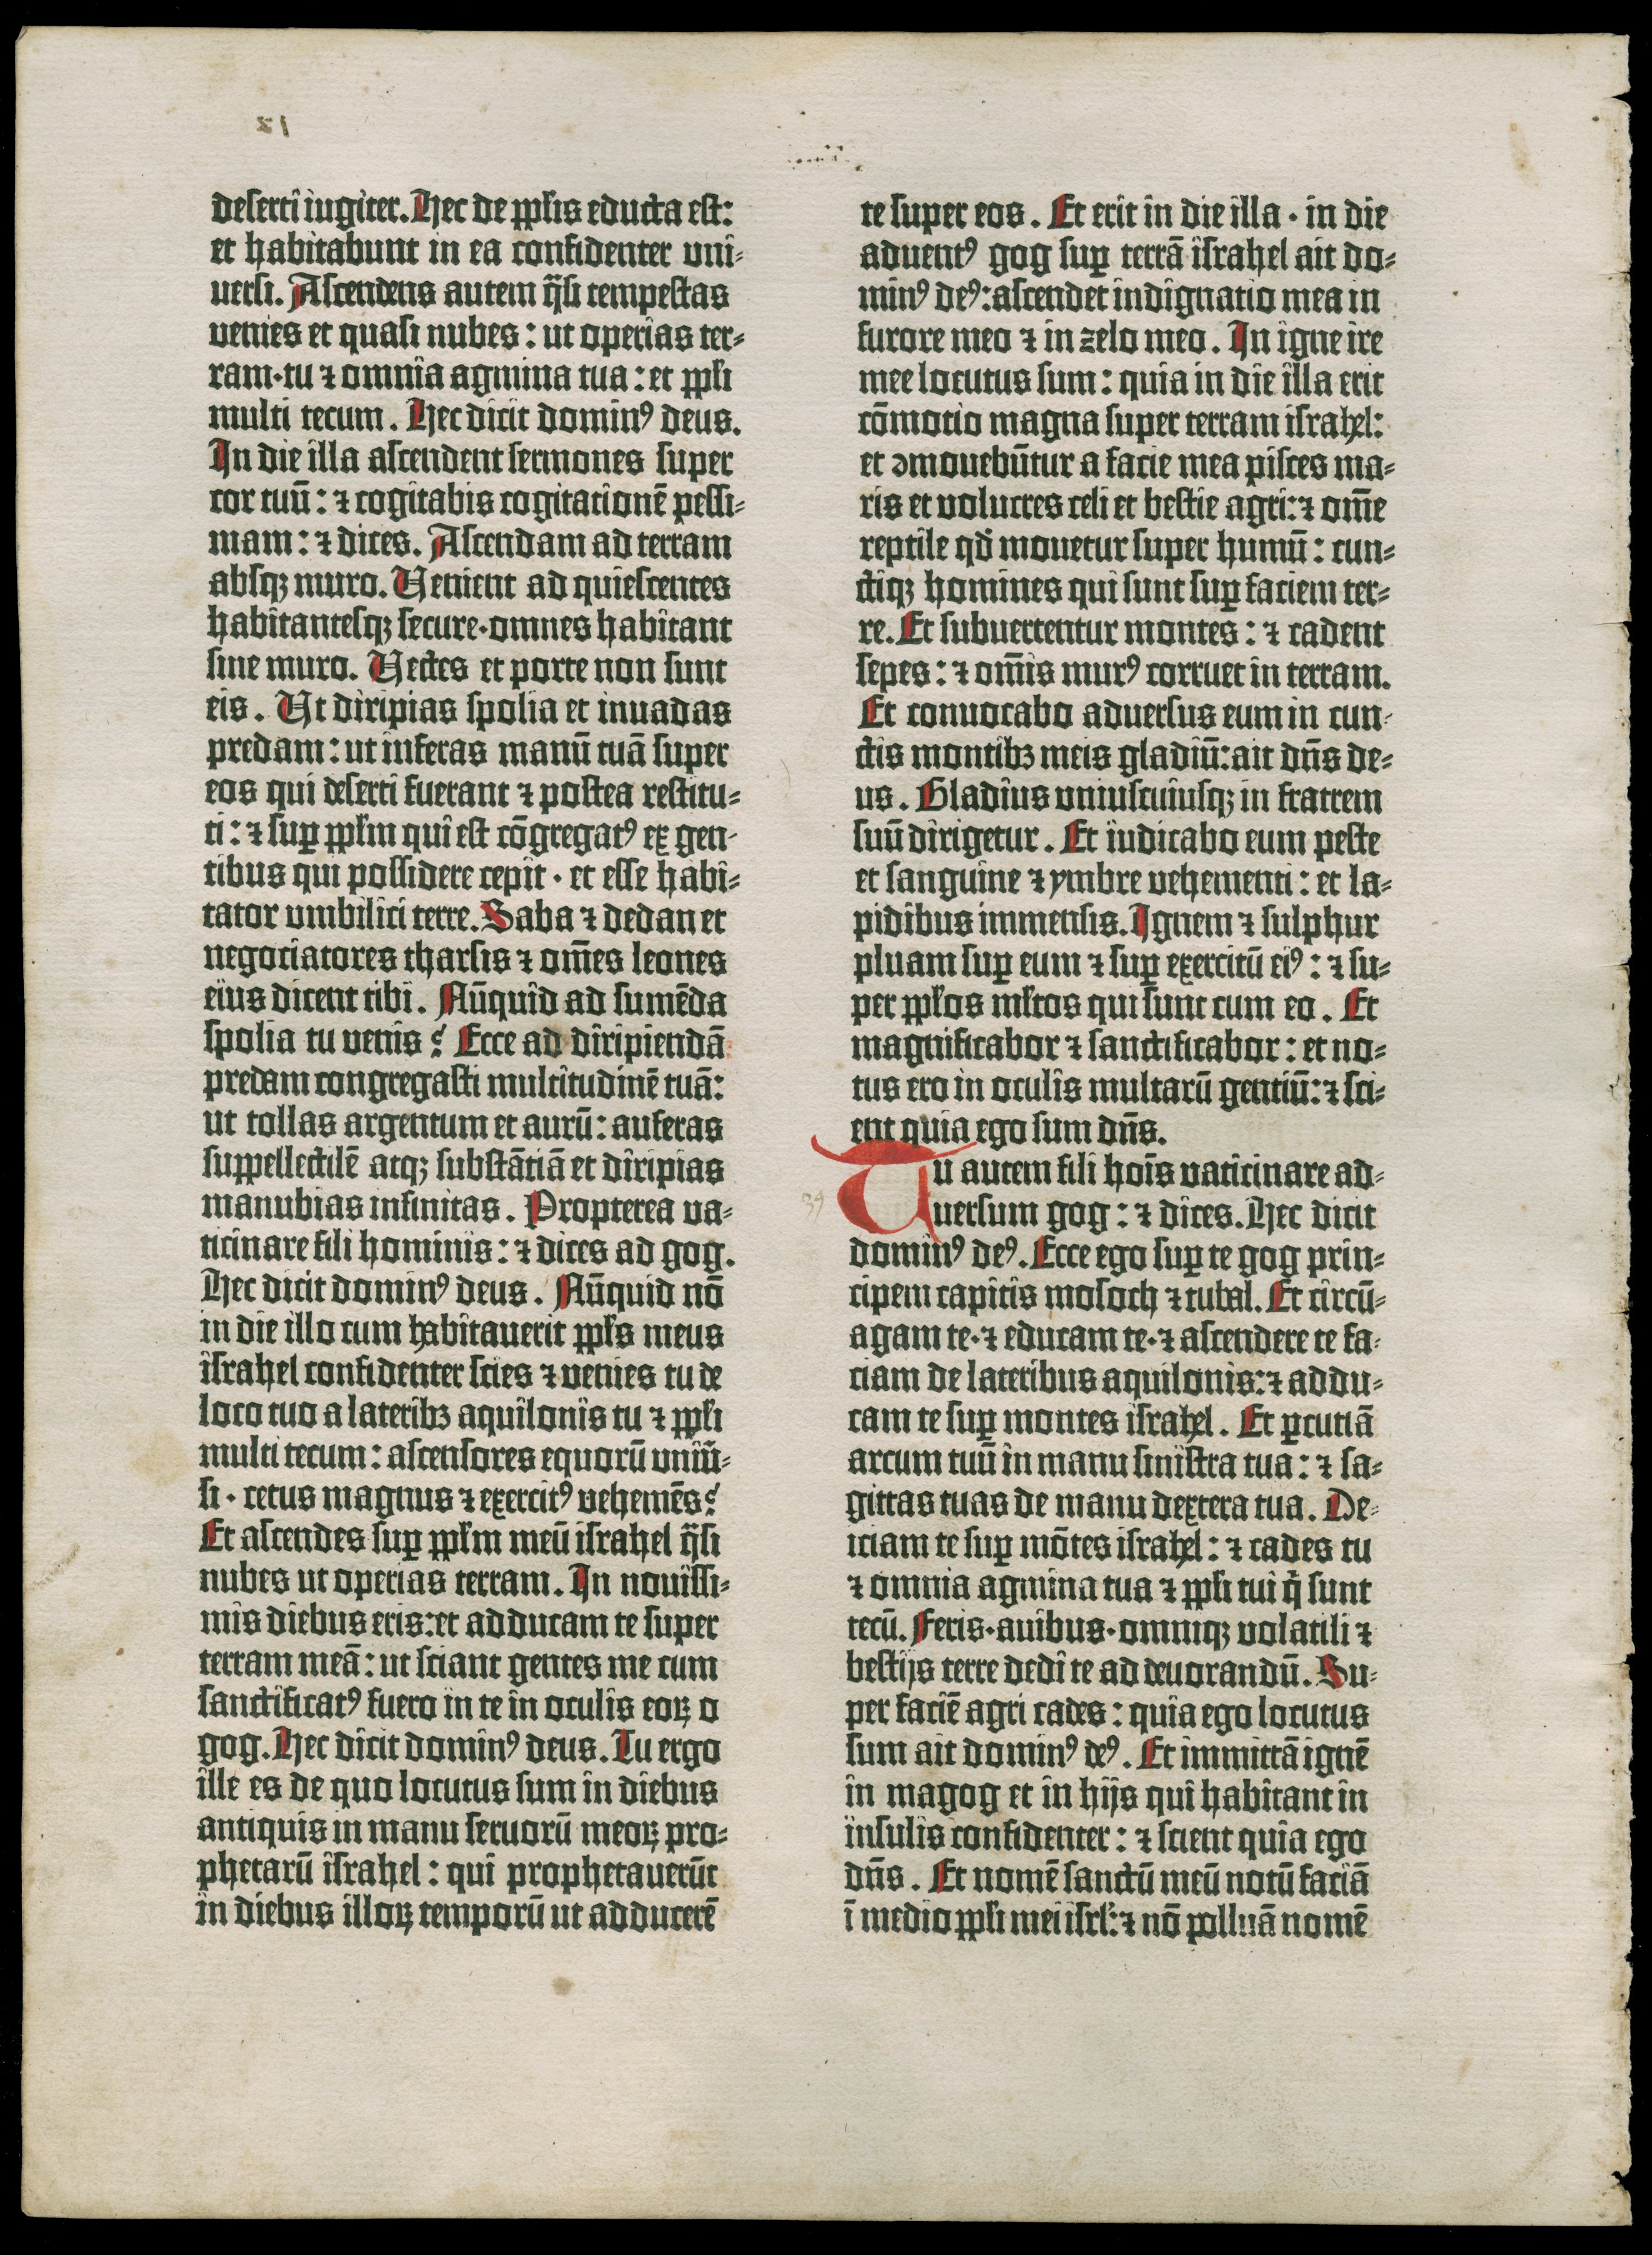 21
deserti iugiter. Hec de ppłis educta est:
et habitabunt in ea confidenter vni-
uersi. Ascendens autem q̄si tempestas
venies et quasi nubes: ut operias ter-
ram·tu ⁊ omnia agmina tua: et ppłi
multi tecum. Hec dicit dominꝰ deus.
In die illa ascendent sermones super
cor tuū: ⁊ cogitabis cogitationē pessi-
mam: ⁊ dices. Ascendam ad terram
absqꝫ muro. Venient ad quiescentes
habitantesqꝫ secure·omnes habitant
sine muro. Vectes et porte non sunt
eis. Ut diripias spolia et inuadas
predam: ut inferas manū tuā super
eos qui deserti fuerant ⁊ postea restitu-
ti: ⁊ suꝑ ppłm qui est cōgregatꝰ ex gen-
tibus qui possidere cepit · et esse habi-
tator vmbilici terre. Saba ⁊ dedan et
negociatores tharsis ⁊ om̄es leones
eius dicent tibi. Nūquid ad sumēda
spolia tu venis? Ecce ad diripiendā
predam congregasti multitudinē tuā:
ut tollas argentum et aurū: auferas
suppellectilē atqꝫ substātiā et diripias
manubias infinitas. Propterea va-
ticinare fili hominis: ⁊ dices ad gog.
Hec dicit dominꝰ deus. Nūquid nō
in die illo cum habitauerit ppłs meus
israhel confidenter scies ⁊ venies tu de
loco tuo a lateribꝫ aquilonis tu ⁊ ppłi
multi tecum: ascensores equorū vniū-
si · cetus magnus ⁊ exercitꝰ vehemēs?
Et ascendes suꝑ ppłm meū israhel q̄si
nubes ut operias terram. In nouissi-
mis diebus eris: et adducam te super
terram meā: ut sciant gentes me cum
sanctificatꝰ fuero in te in oculis eoꝝ o
gog. Hec dicit dominꝰ deus. Tu ergo
ille es de quo locutus sum in diebus
antiquis in manu seruorū meoꝝ pro-
phetarū israhel: qui prophetauerūt
in diebus illoꝝ temporū ut adducerē
te super eos. Et erit in die illa · in die
aduentꝰ gog suꝑ terrā israhel ait do-
minꝰ deꝰ: ascendet indignatio mea in
furore meo ⁊ in zelo meo. In igne ire
mee locutus sum: quia in die illa erit
cōmotio magna super terram israhel:
et ꝯmouebūtur a facie mea pisces ma-
ris et volucres celi et bestie agri: ⁊ om̄e
reptile qd̄ mouetur super humū: cun-
ctiqꝫ homines qui sunt suꝑ faciem ter-
re. Et subuertentur montes: ⁊ cadent
sepes: ⁊ om̄is murꝰ corruet in terram.
Et conuocabo aduersus eum in cun-
ctis montibꝫ meis gladiū: ait dn̄s de-
us. Gladius vniuscuiusqꝫ in fratrem
suū dirigetur. Et iudicabo eum peste
et sanguine ⁊ ymbre vehementi: et la-
pidibus immensis. Ignem ⁊ sulphur
pluam suꝑ eum ⁊ suꝑ exercitū eiꝰ: ⁊ su-
per ppłos młtos qui sunt cum eo. Et
magnificabor ⁊ sanctificabor: et no-
tus ero in oculis multarū gentiū: ⁊ sci-
ent quia ego sum dn̄s.
Tu autem fili hoīs vaticinare ad-
39 uersum gog: ⁊ dices. Hec dicit
dominꝰ deꝰ. Ecce ego suꝑ te gog prin-
cipem capitis mosoch ⁊ tubal. Et circū-
agam te·⁊ educam te·⁊ ascendere te fa-
ciam de lateribus aquilonis: ⁊ addu-
cam te suꝑ montes israhel. Et ꝑcutiā
arcum tuū in manu sinistra tua: ⁊ sa-
gittas tuas de manu dextera tua. De-
iciam te suꝑ mōtes israhel: ⁊ cades tu
⁊ omnia agmina tua ⁊ ppłi tui q̄ sunt
tecū. Feris·auibus·omniqꝫ volatili ⁊
bestijs terre dedi te ad deuorandū. Su-
per faciē agri cades: quia ego locutus
sum ait dominꝰ deꝰ. Et immittā ignē
in magog et in hijs qui habitant in
insulis confidenter: ⁊ scient quia ego
dn̄s. Et nomē sanctū meū notū faciā
ī medio ppłi mei isrł: ⁊ nō polluā nomē